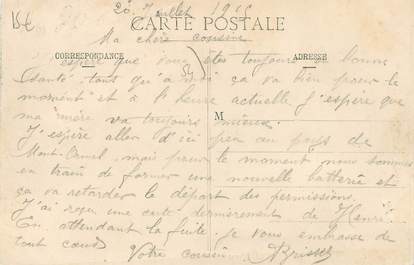 20 Juillet 1915
CARTE POSTALE
Ma chère cousine
CORRESPONDANCE
ADRESSE
J'espère que vous êtes toujours en bonne
santé tant qu'à moi ça va bien pour le
moment et à l'heure actuelle j'espère que
M
ma mère va toujours mieux.
J'espère aller d'ici peu au pays de
Mont-Carmel, mais pour le moment nous sommes
en train de former une nouvelle batterie et
ça va retarder le départ des permissions.
J'ai reçu une carte dernièrement de Henri.
En attendant la suite. Je vous embrasse de
tout coeur
Votre cousin